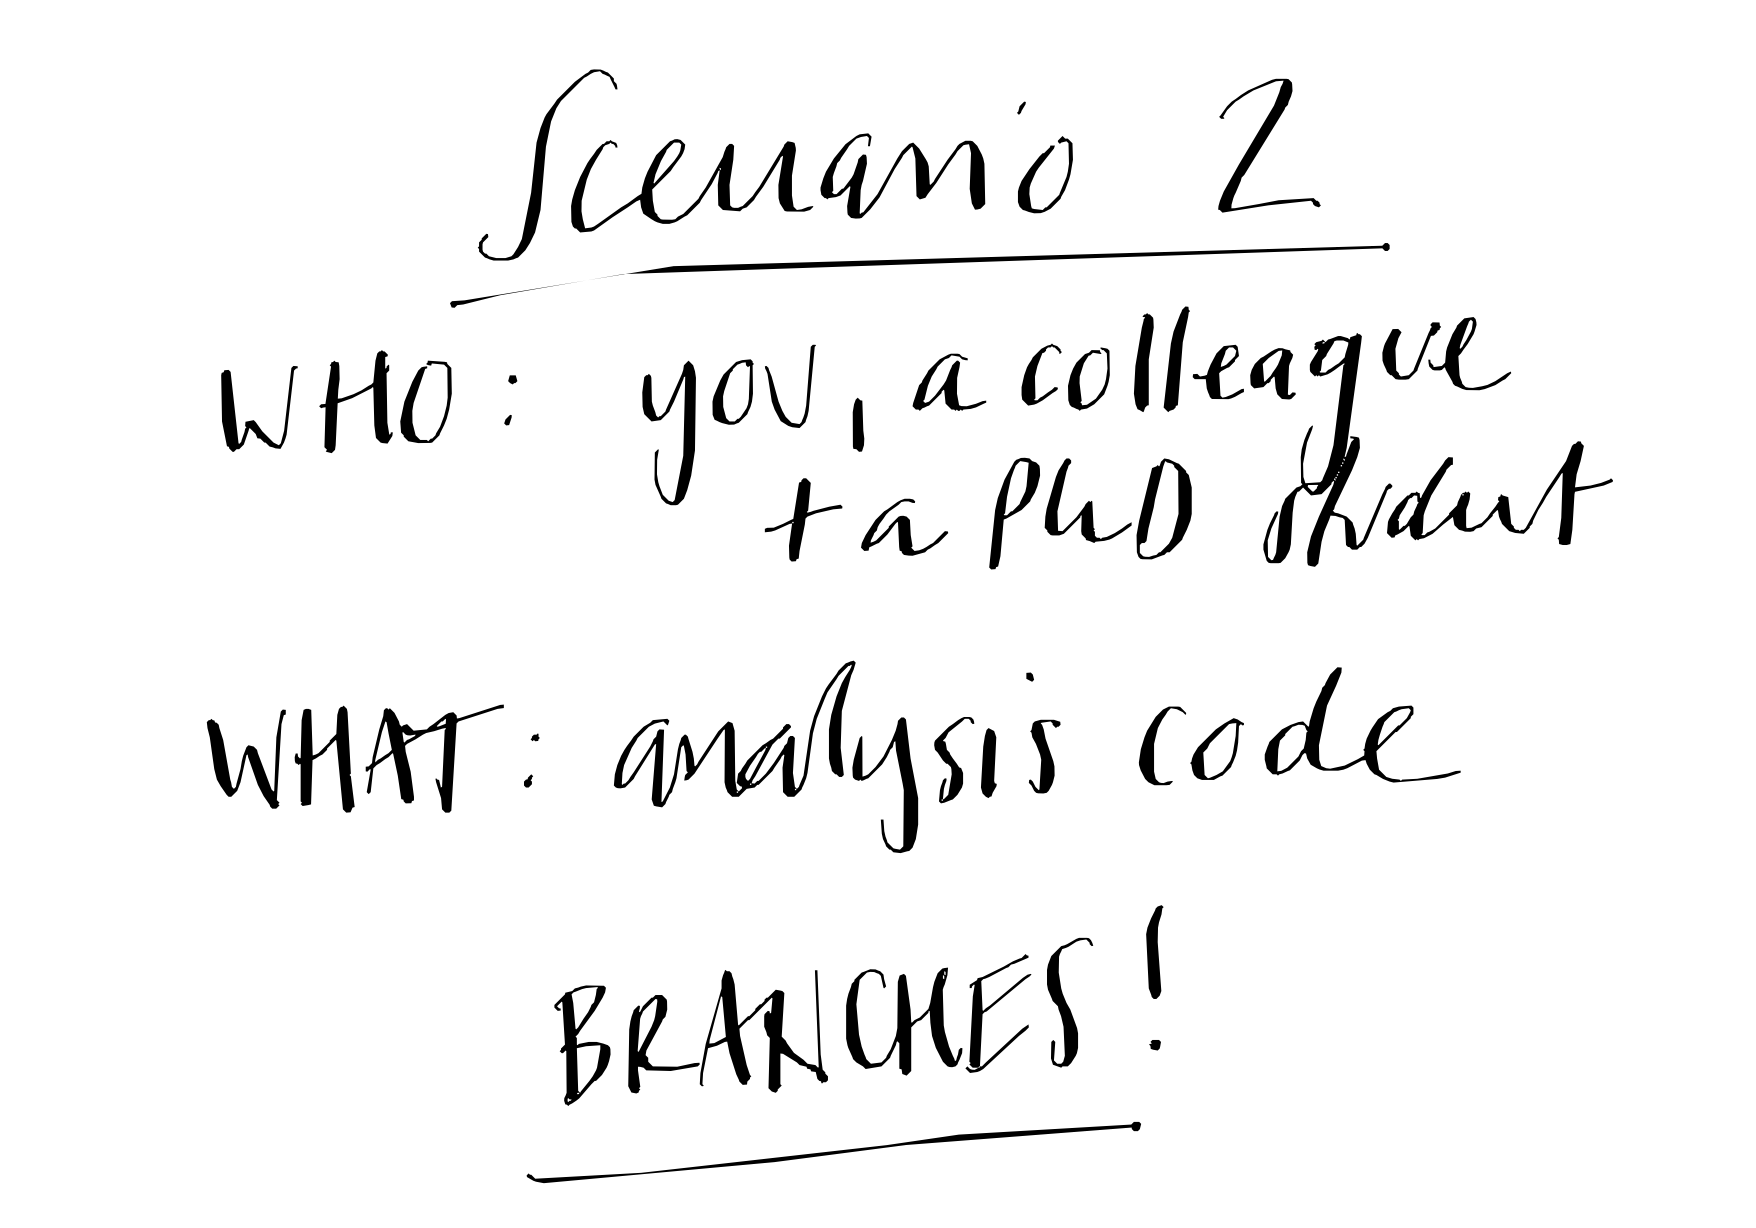 Scenario 2
WHO: you, a colleague
+ a PhD student
WHAT: analysis code
BRANCHES!